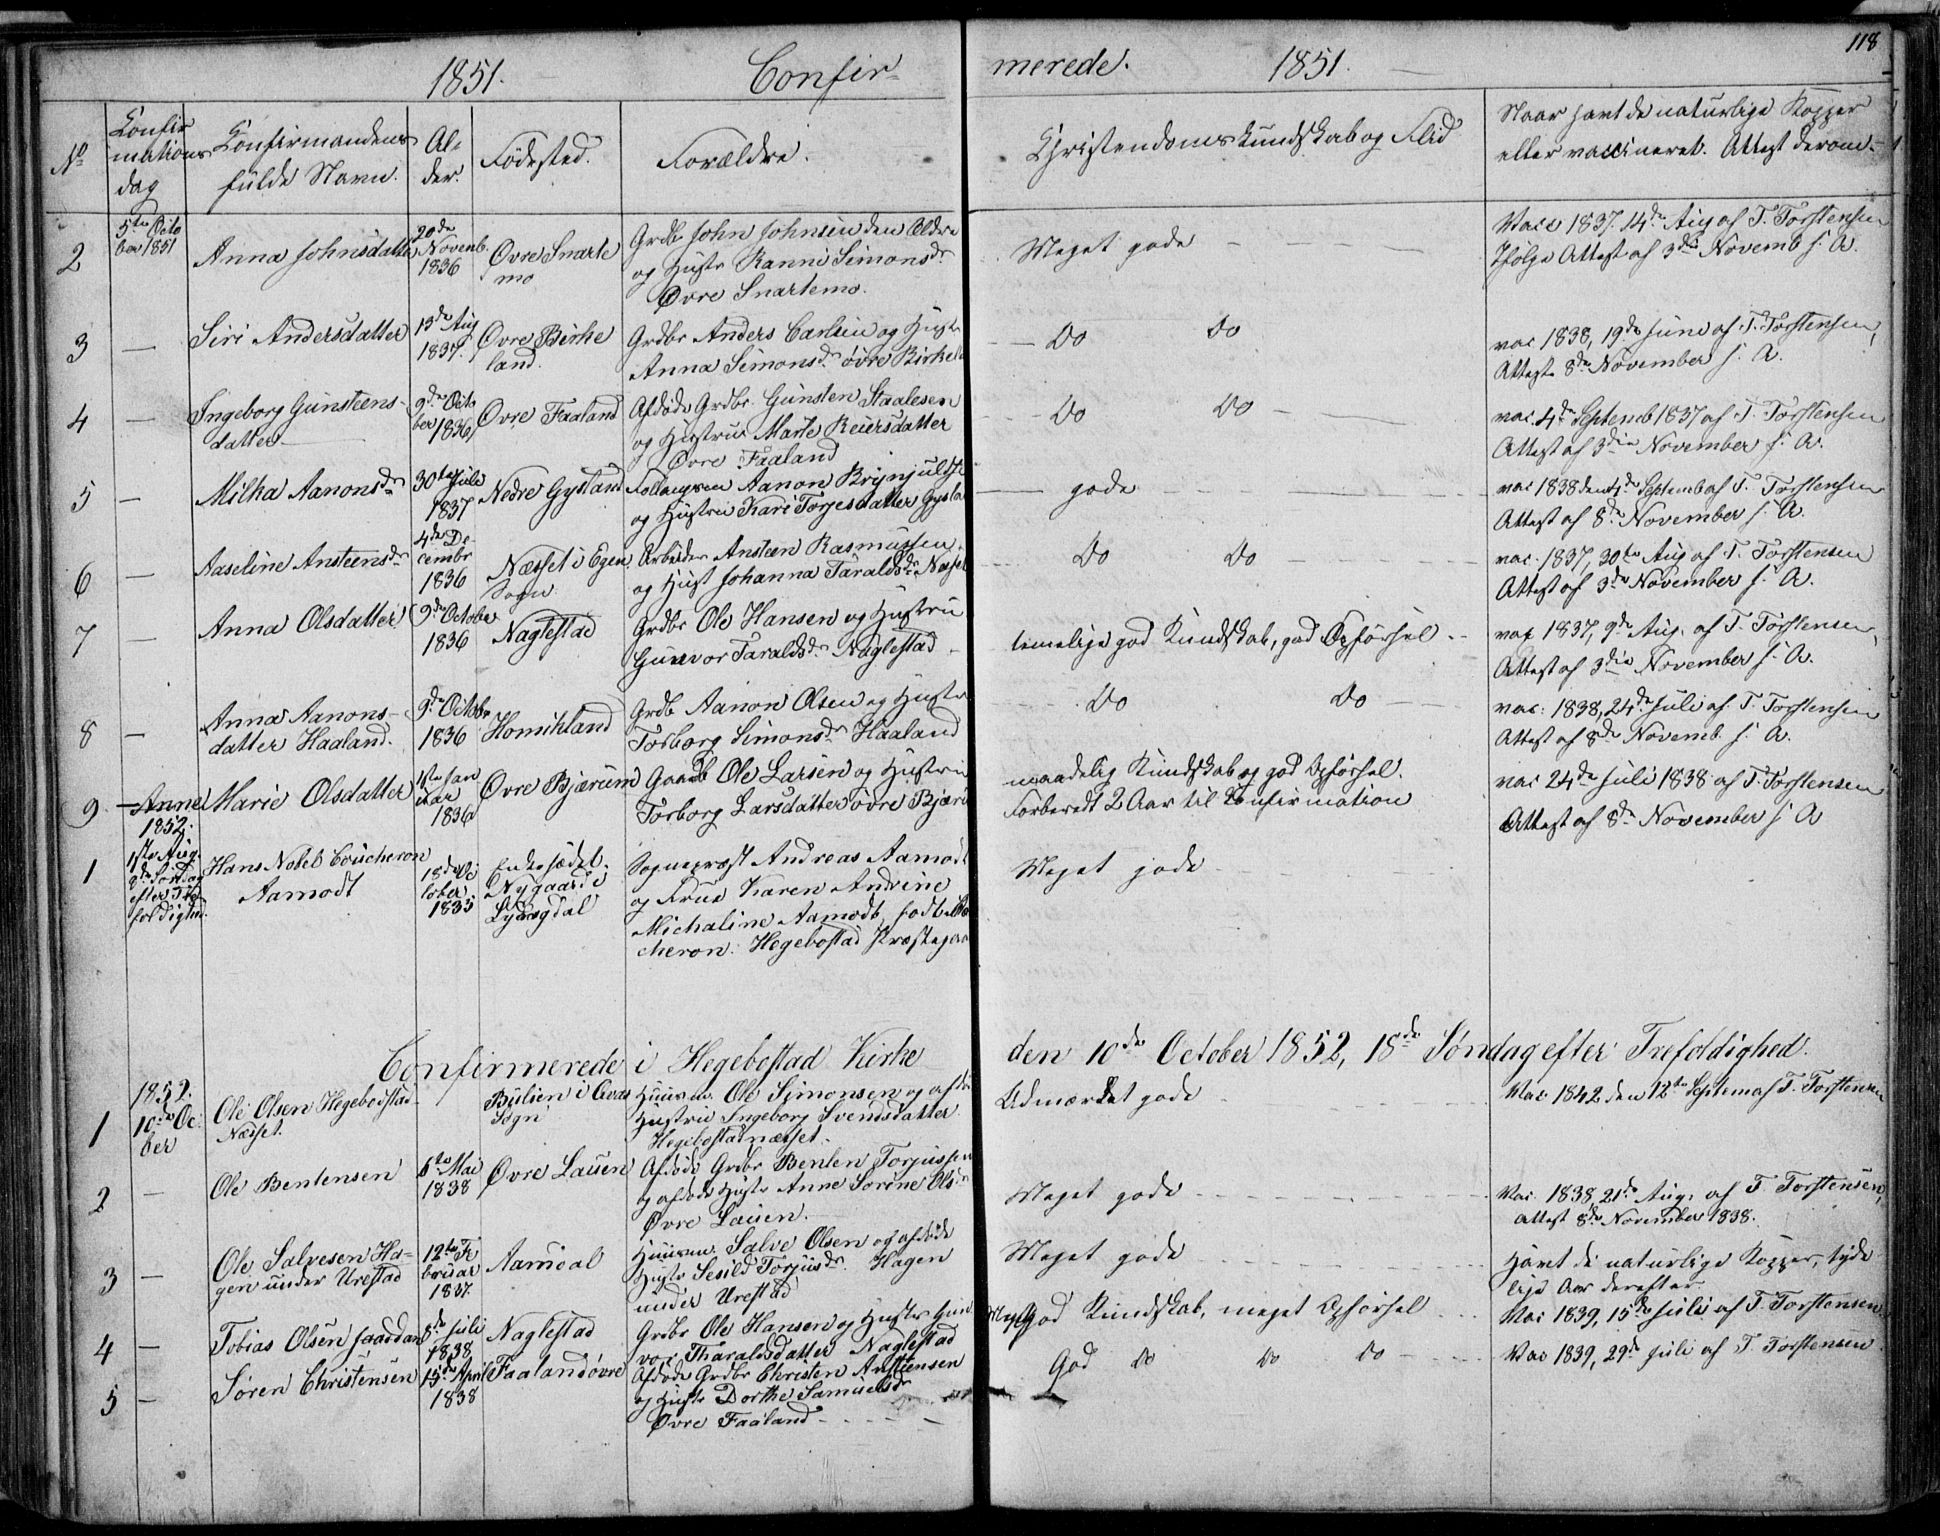 118
1851. Confirmerede. 1851.
No
Confirmations dag
Confirmandens fulde Navn.
Alder.
Fødested.
Forældre.
Christendoms Kundskab og Flid
Naar havt de naturlige Kopper
eller vaccineret. Attest derom
2
5te October 1851
Anna Johnsdatter
20de Novemb. 1836
Øvre Snartemo
Grdb. John Johnsen den Ældre
og Hustr Ranni Simonsdr
Øvre Snartemo.
Meget gode
Vacc 1837. 14de Aug af T. Torstensen
Ifølge Attest af 3die Novemb s. A.
3 —
Siri Andersdatter
13de Aug 1837.
Øvre Birkeland.
Grdbr Anders Carlsen og Hustr
Anna Simonsdr øvre Birkel
Do Do
vac 1838, 19de Juni af T. Torstensen,
Attest 8de November s. A.
4 —
Ingeborg Gunsteens-
datter
9de October 1836
Øvre Faaland
Afdøde Grdbr. Gunsten Staalesen
og Hustrue Marte Reiersdatter
Øvre Faaland
Do Do
vac. 4de Septemb 1837 af T. Torstensen
Attest af 3die November s. A.
5 —
Milka Aanonsdr
30te Juli 1837
Nedre Gysland
Aanon Brynjuls
og Hustrue Kari Torjesdatter Gysla
gode
vac 1838 den 4de Septemb af T. Torstensen
Attest af 8de November s. A.
6 —
Aaseline Ansteensdr
4de December 1836
Næsset i Egen
Sogn
Arbeider Ansteen Rasmussen
og Hust Johanna Taraldsdr Næsset
Do Do
vac. 1837, 30te Aug af T. Torstensen
Attest af 3die November s. A.
7 —
Anna Olsdatter
9de October 1836
Naglestad
Grdbr Ole Hansen og Hustru
Gunvor Taraldsdr Naglestad
temelige god Kundskab, god Opførsel
vac 1837, 9de Aug. af T. Torstensen,
Attest af 3die November s. A.
8 —
Anna Aanons-
datter Haaland.
9de Octobr 1836
Homikland
Grdb Aanon Olsen og Hustr
Torborg Simonsdr Haaland
Do Do
vac: 1838, 24de Juli af T. Torstensen
Attest af 8de Novemb. s. A.
9 —
Anne Marie Olsdatter
1ste Januar 1836
Øvre Bjærum
Gaardb Ole Larsen og Hustrue
Torborg Larsdatter øvre Bjær
maadelig Kundskab og god Opførsel.
Forberedt 2 Aar til Confirmation
vac 24de Juli 1838 af T. Torstensen
Attest af 8de November s A
1852.
1
1ste Aug. 8de Søndag efter Trefoldighed.
Hans Nobel Boucheron
Aamodt
18de October 1835
Enkesædet
Nygaard i
Lyngdal
Sognepræst Andreas Aamodt
og Frue Karen Andrine
Michaline Aamodt, født Bou
cheron. Hegebostad Præstegaar
Meget gode
Confirmerede i Hegebostad Kirke den 10de October 1852, 18de Søndag efter Trefoldighed.
1
1852. 10de Oc: ber
Ole Olsen Hegebostad
Næsset.
Sogn
Huusm. Ole Simonsen og afdø
Hustrue Ingeborg Svendsdatter
Hegebostadnæsset.
Udmærket gode
Vac: 1842 den 12te Septem af T. Torstensen
2 —
Ole Bentensen
6te Mai 1838
Øvre Lauen
Afdøde Grdbr Benten Torjussen
og afdøde Hustr Anne Sorine Olsdr
Øvre Lauen.
Meget gode
Vac. 1838, 21de Aug. af T. Torstensen,
attest 8de November 1838.
3 —
Ole Salvesen Ha-
gen under Urestad
12te Februar 1837
Aamdal
Huusm. Salve Olsen og afdøde
Hustr Sesild Torjusdr Hagen
under Urestad
Meget gode
Havt de naturlige Kopper, tyde
lige Aar derefter
4 —
Tobias Olsen
8de Juli 1838
Naglestad
Grdbr Ole Hansen og Hustr Gun
vor Tharaldsdatter Naglestad
Meget God Kundskab, meget Opførsel
Vac 1839, 15de Juli af T. Torstensen
5 —
Søren Christensen
15de April 1838
Faaland øvre
Afdøde Grdbr Christen Anstensen
og Hustr Dorthe Samuelsdr
Øvre Faaland
God Do Do Do
Vac 1839, 29de Juli af T. Torstensen